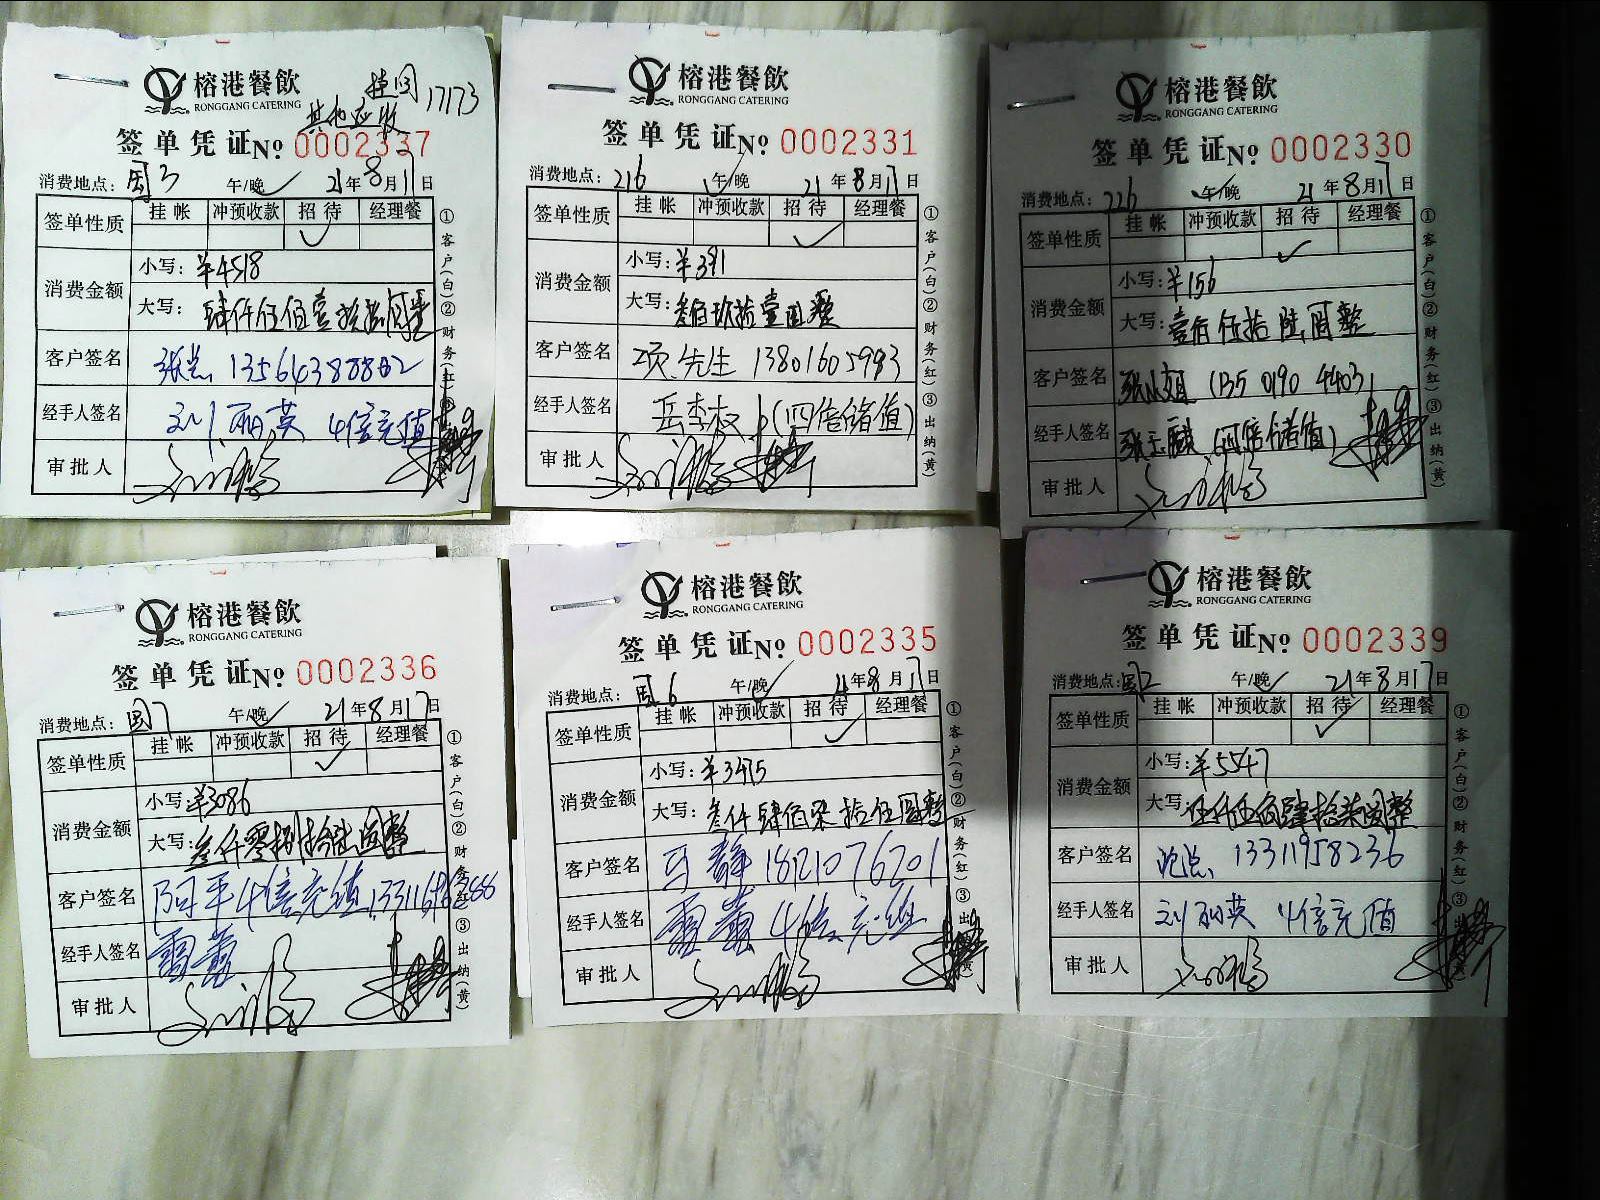 榕港餐飲
RONGGANG CATERING
挂 17173
其他
签单凭证 No 0002337
消费地点： 国3 午/晚 21年8月17日
签单性质 挂帐 冲预收款 招待 经理餐
消费金额 小写：¥4518
大写：肆仟伍佰壹拾捌圆整
客户签名 张总 13564388882
经手人签名 刘丽英 4倍充值
审批人
①客户(白)②财务(红)③出纳(黄)
榕港餐飲
RONGGANG CATERING
签单凭证 No 0002331
消费地点：216 午/晚 21年8月17日
签单性质 挂帐 冲预收款 招待 经理餐
消费金额 小写：¥391
大写：叁佰玖拾壹圆整
客户签名 项先生 13801605993
经手人签名 岳李权 (四倍储值)
审批人
①客户(白)②财务(红)③出纳(黄)
榕港餐飲
RONGGANG CATERING
签单凭证 No 0002330
消费地点：226 午/晚 21年8月17日
签单性质 挂帐 冲预收款 招待 经理餐
消费金额 小写：¥156
大写：壹佰伍拾陆圆整
客户签名 张小姐 (135 0190 4403)
经手人签名 张玉麟 (四倍储值)
审批人
①客户(白)②财务(红)③出纳(黄)
榕港餐飲
RONGGANG CATERING
签单凭证 No 0002336
消费地点：国7 午/晚 21年8月17日
签单性质 挂帐 冲预收款 招待 经理餐
消费金额 小写：¥3086
大写：叁仟零捌拾陆圆整
客户签名 阿平 4倍充值
经手人签名 雷蕾
审批人
①客户(白)②财务(红)③出纳(黄)
榕港餐飲
RONGGANG CATERING
签单凭证 No 0002335
消费地点：国6 午/晚 21年8月17日
签单性质 挂帐 冲预收款 招待 经理餐
消费金额 小写：¥3475
大写：叁仟肆佰柒拾伍圆整
客户签名 马静 18121076201
经手人签名 雷蕾 4倍充值
审批人
①客户(白)②财务(红)③出纳(黄)
榕港餐飲
RONGGANG CATERING
签单凭证 No 0002339
消费地点：国2 午/晚 21年8月17日
签单性质 挂帐 冲预收款 招待 经理餐
消费金额 小写：¥5547
大写：伍仟伍佰肆拾柒圆整
客户签名 沈总 13311958236
经手人签名 刘丽英 4倍充值
审批人
①客户(白)②财务(红)③出纳(黄)